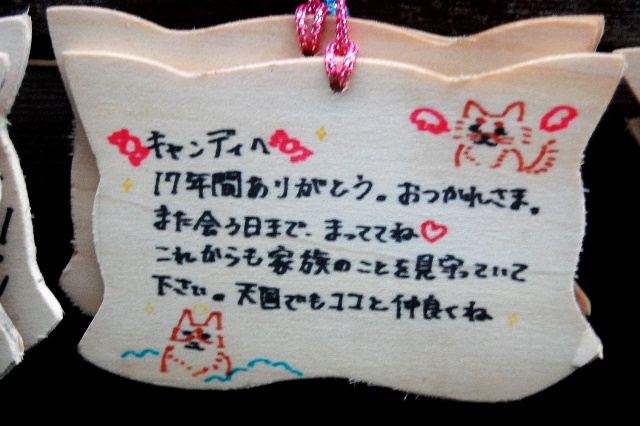 キャンディへ
17年間ありがとう。おつかれさま。
また会う日まで、まっててね♡
これからも家族のことを見守っていて
下さい。天国でもココと仲良くね